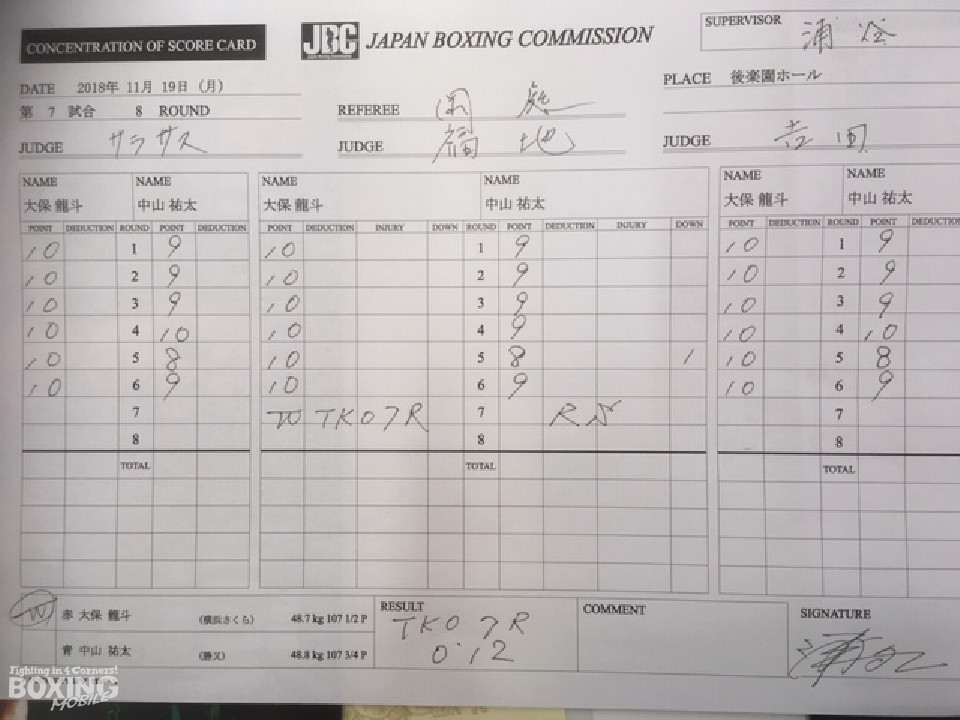 CONCENTRATION OF SCORE CARD
JBC JAPAN BOXING COMMISSION
SUPERVISOR 浦谷
DATE 2018年 11月 19日 (月)
PLACE 後楽園ホール
第 7 試合 8 ROUND
REFEREE
JUDGE サラサス
JUDGE 福地
JUDGE 吉田
NAME NAME NAME NAME NAME NAME
大保 龍斗 中山 祐太 大保 龍斗 中山 祐太 大保 龍斗 中山 祐太
POINT DEDUCTION ROUND POINT DEDUCTION POINT DEDUCTION INJURY DOWN ROUND POINT DEDUCTION INJURY DOWN POINT DEDUCTION ROUND POINT DEDUCTION
10 1 9 10 1 9 10 1 9
10 2 9 10 2 9 10 2 9
10 3 9 10 3 9 10 3 9
10 4 10 10 4 9 10 4 10
10 5 8 10 5 8 1 10 5 8
10 6 9 10 6 9 10 6 9
7 W TKO7R 7 7
8 8 8
TOTAL TOTAL TOTAL
W 赤 大保 龍斗 (横浜さくら) 48.7 kg 107 1/2 P
青 中山 祐太 (勝又) 48.8 kg 107 3/4 P
RESULT
TKO 7R
0'12
COMMENT
SIGNATURE
Fighting in 4 Corners!
BOXING
MOBILE